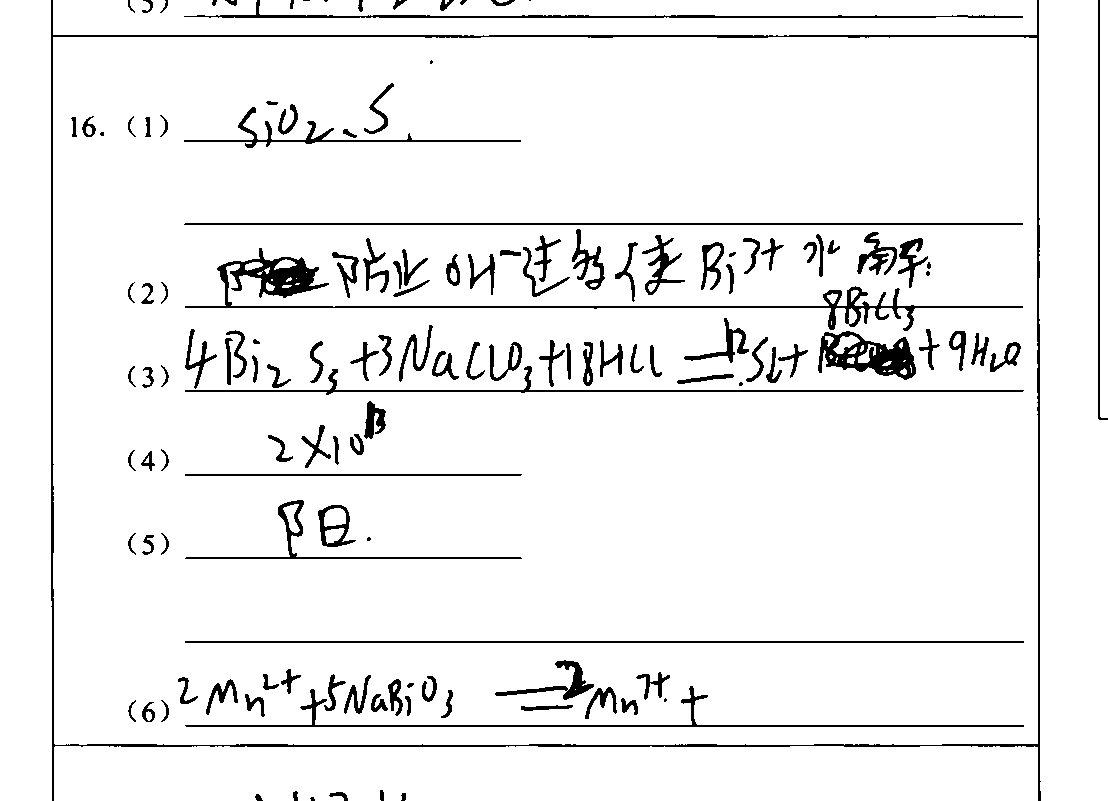 (5)
16. (1) SiO₂、S.
(2) 防止OH⁻过多使Bi³⁺水解.
8BiCl₃
(3) 4Bi₂S₃+3NaClO₃+18HCl=12S↓+ +9H₂O
(4) 2×10¹³
(5) 阳.
(6) 2Mn²⁺+5NaBiO₃=2Mn⁷⁺+